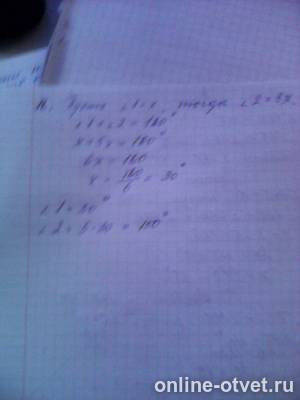 16. Пусть ∠1=x, тогда ∠2=5x
∠1+∠2=180°
x+5x=180°
6x=180
x=180/6=30°
∠1=30°
∠2=5·30=150°
online-otvet.ru